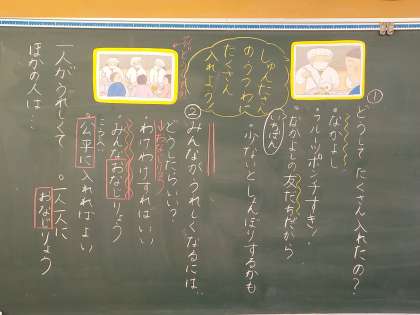 ①
どうして たくさん 入れたの？
・なかよし
・フルーツポンチすき！
・なかよしの友だちだから
いちばん
・少ないとしょんぼりするかも
しゅんたさんのうつわにたくさん入れよう！
②
みんながうれしくなるには、
どうしたらいい？
・わけわけすればいい
・みんなおなじりょう
・公平に入れればよい
一人がうれしくて
ほかの人は…
一人一人に
おなじりょう